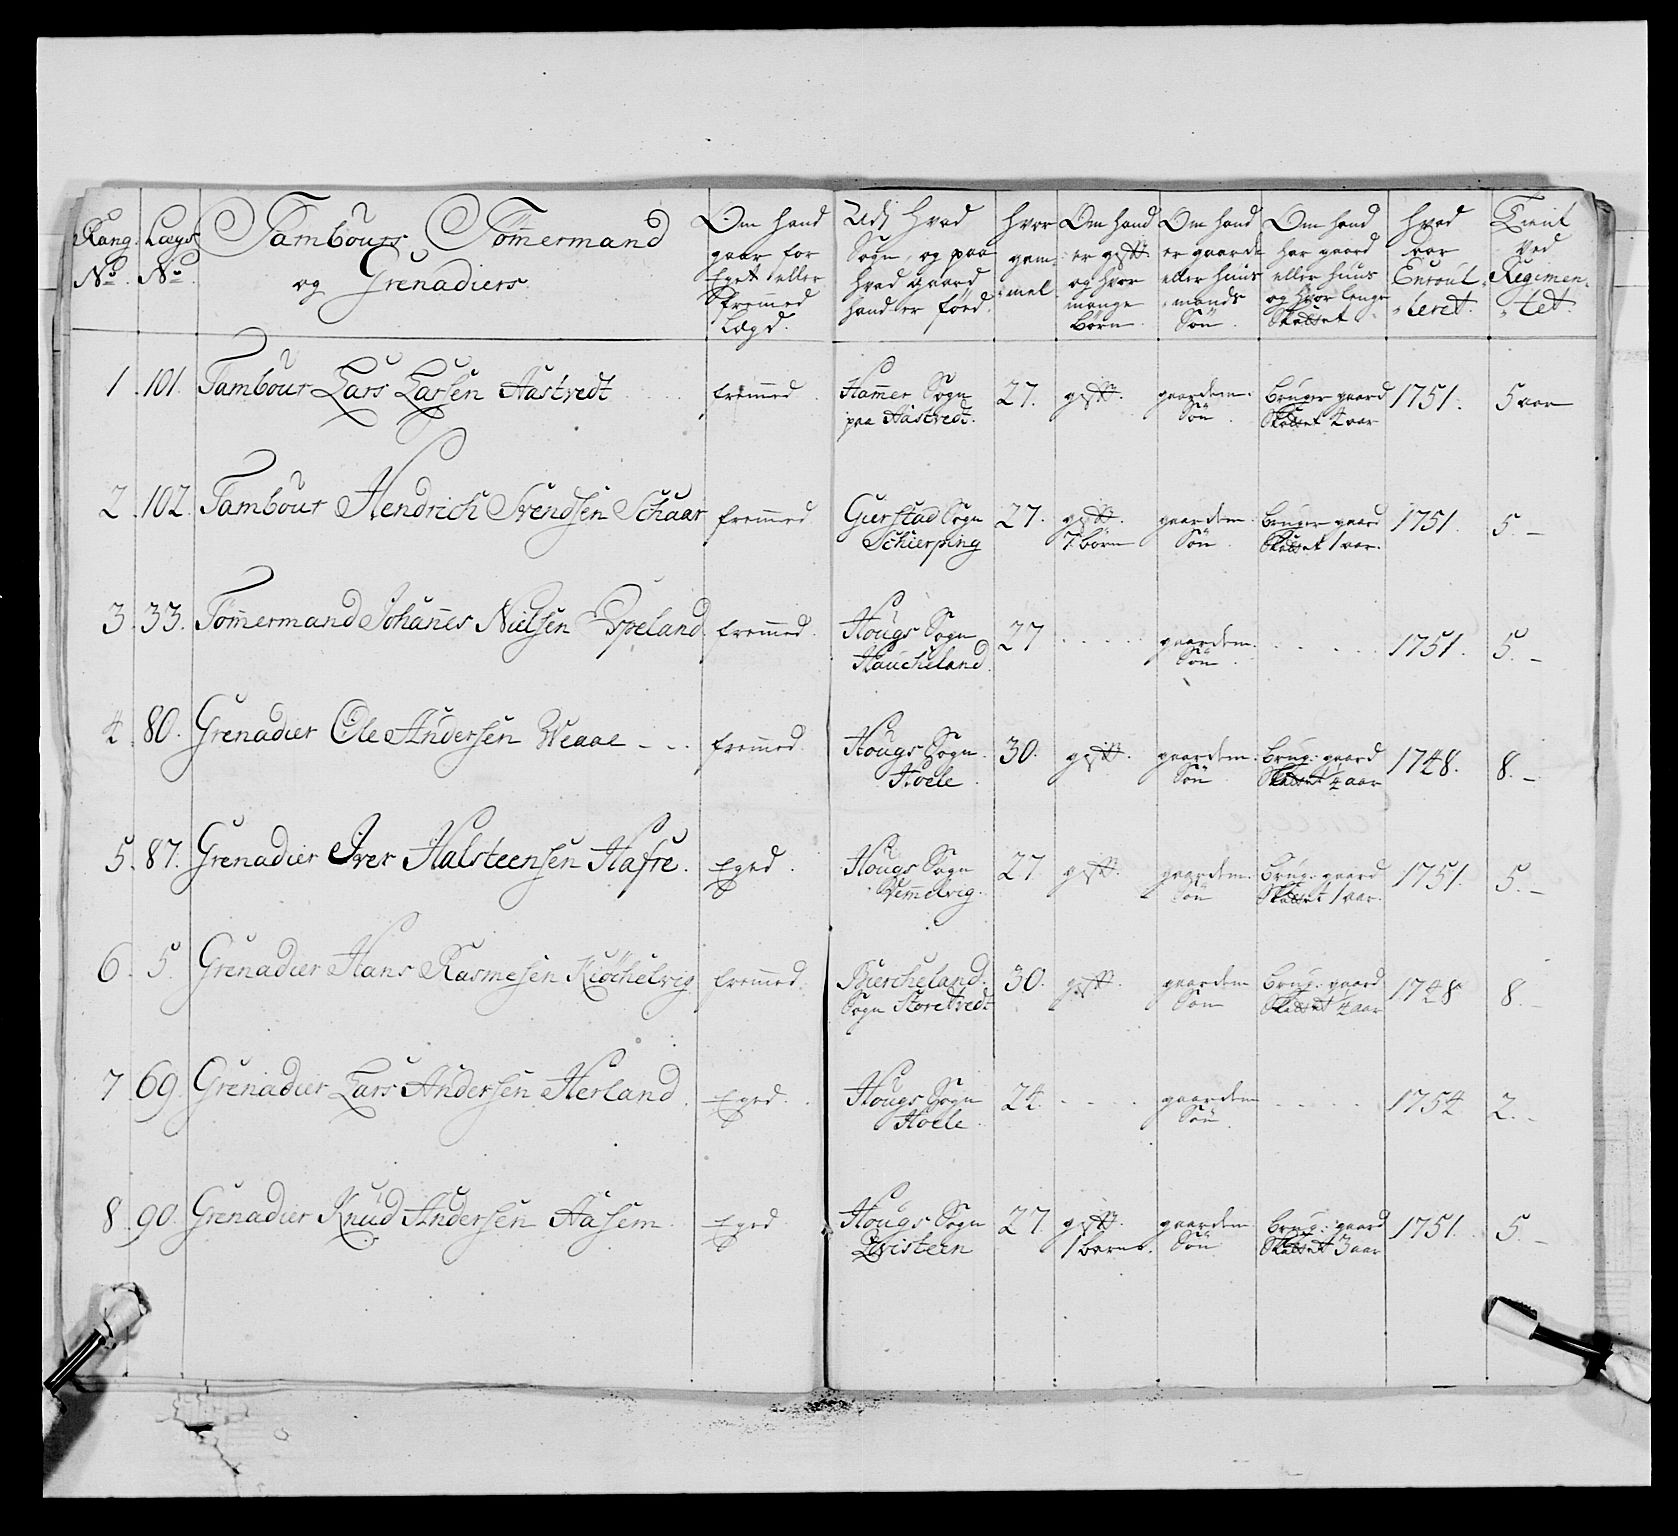 Rang No. Lægs No. Tambours Tömmermand og Grenadiers. Om hand gaar for Eget eller fremed Lægd. Udj Hvad Sogn, og paa hvad gaard, hand er föed. hvor gam„mel Om hand er gift og hvor mange börn. Om hand er gaards eller huus„mands Sön. Om hand har gaard eller huus og hvor lenge Skattet. hvad aar Enroul„leret. Tient ved Regimen„tet.
1. 101. Tambour Lars Larsen Aastvedt fremmed. Hammer Sogn paa Aastvedt. 27. gift. gaardem: Sön. Bruger gaard Skattet 4 aar 1751. 5 aar
2. 102. Tambour Hendrich Svendsen Schaar fremmed Gierstad Sogn Schierping 27. gift. 7. börn gaardem: Sön. Bruger gaard Skattet 1 aar. 1751. 5. –
3. 33. Tömmermand Johannes Nielsen Espeland. fremmed. Hougs Sogn Haucheland. 27 gaardem. Sön. 1751. 5. –
4. 80. Grenadier Ole Andersen Weaae - - . fremmed. Hougs Sogn. Hoele. 30. gift. gaardem: Sön Brug: gaard Skattet 4 aar 1748. 8. –
5. 87. Grenadier Iver Halsteensen Hafre. Eged. Hougs Sogn Vemmelvig. 27 gift. gaardem. Sön Brug: gaard Skattet 1 aar. 1751. 5. –
6. 5. Grenadier Hans Rasmesen Kiöchelvig fremmed. Biercheland. Sogn Storetvedt 30. gift. gaardem Sön Brug: gaard Skattet 4 aar 1748 8. –
7 69. Grenadier Lars Andersen Herland. Eged. Hougs Sogn Hoele. 24. gaardem Sön. 1754 2. –
8. 90. Grenadier Knud Andersen Aasem. Eged Hougs Sogn Qvisteen 27 gift. 1 barn. gaardem Sön Brug: gaard Skattet 3 aar 1751. 5. –